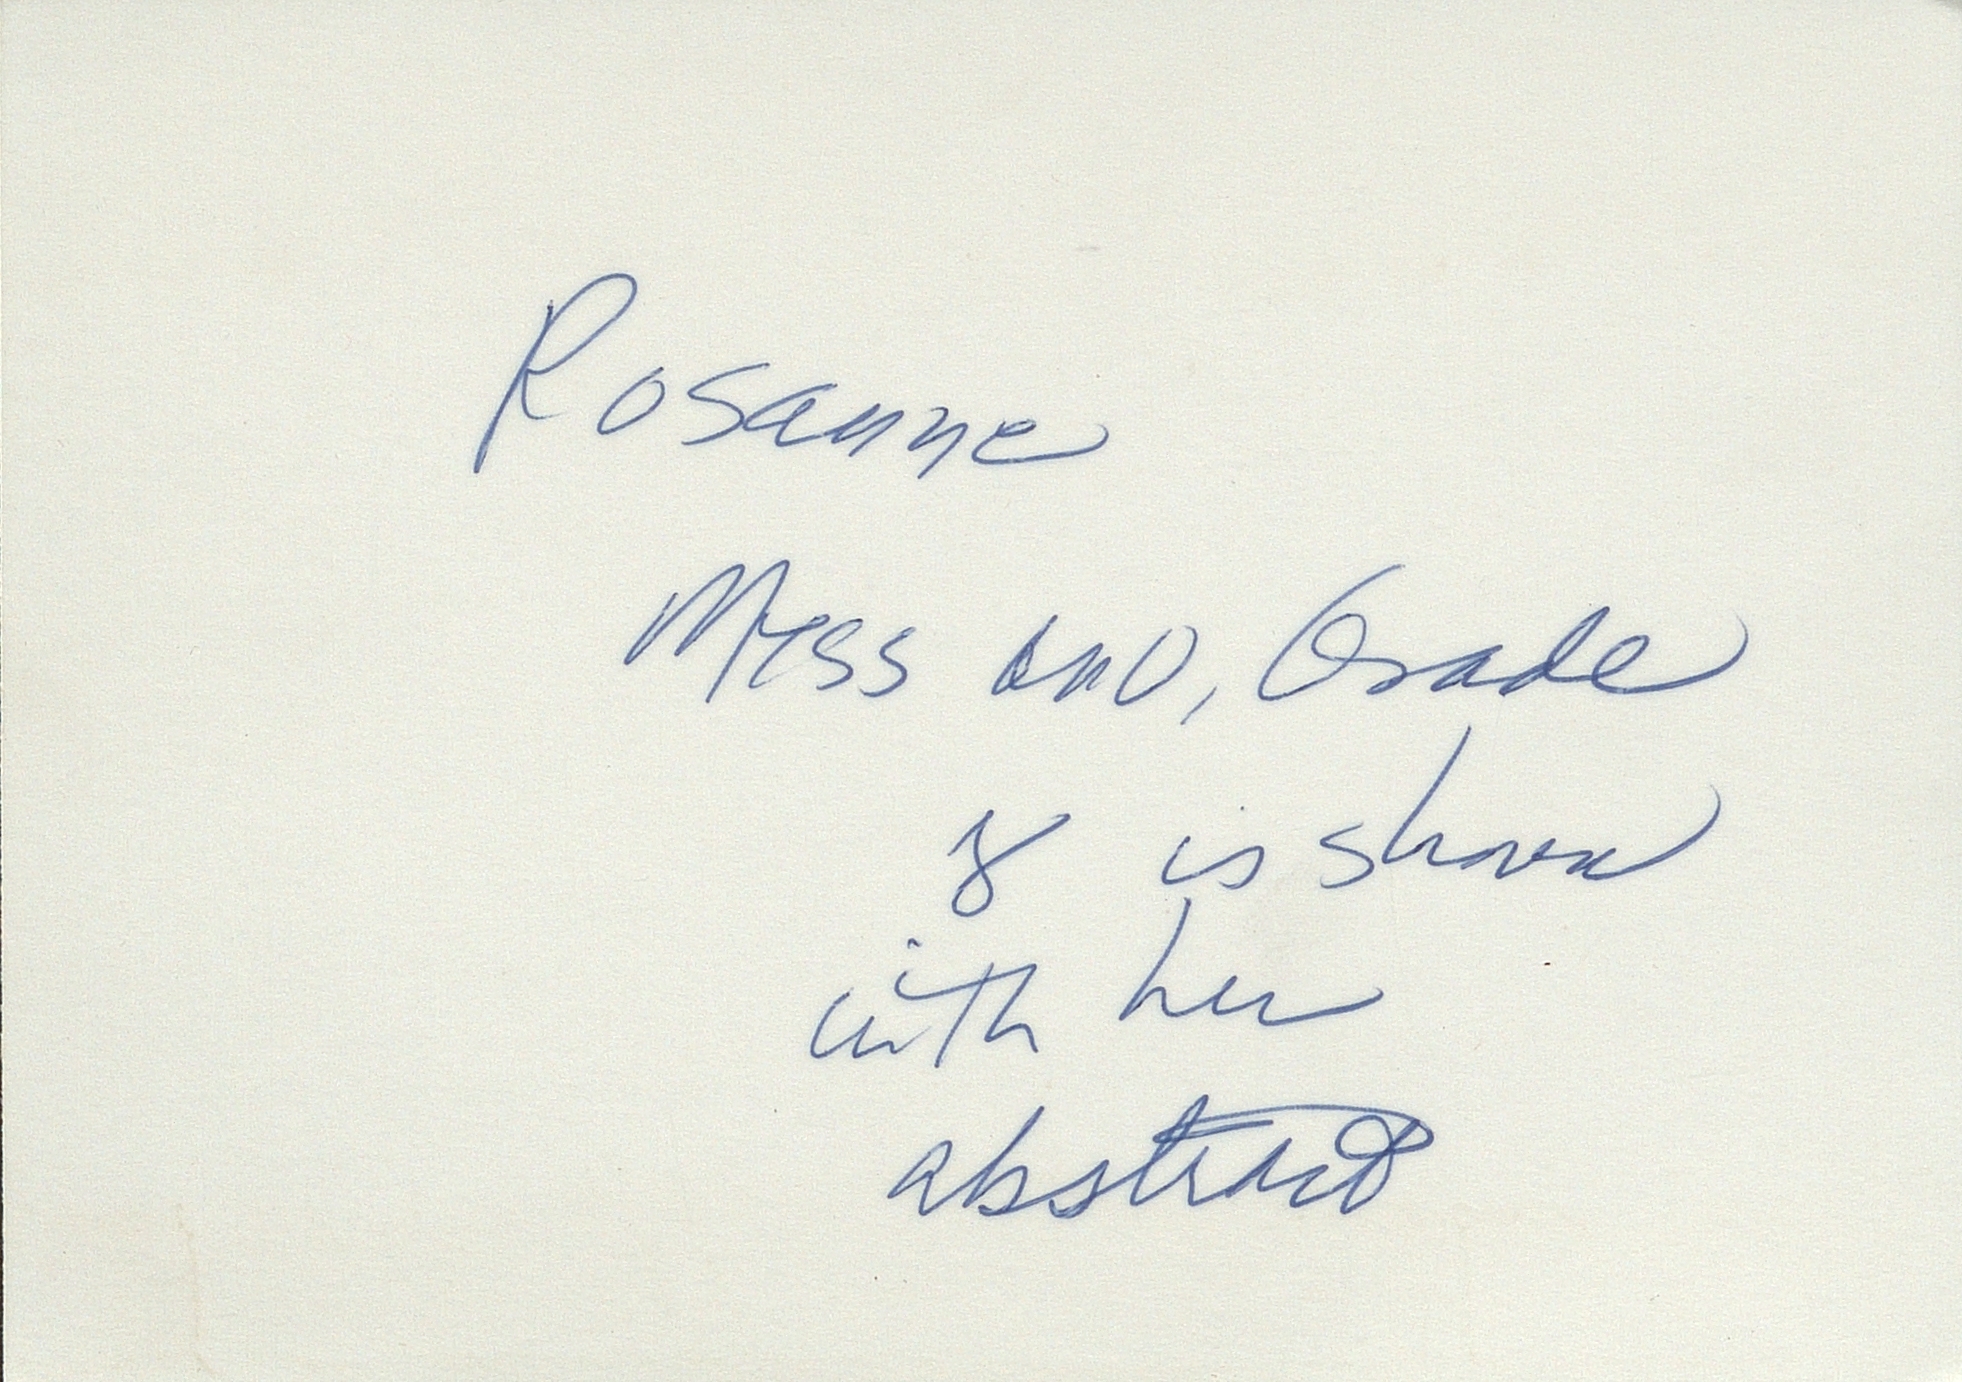 Rosanne
Grade
8 is shown
with her
abstract